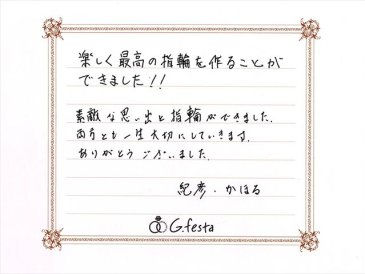 楽しく最高の指輪を作ることが
できました!!
素敵な思い出と指輪ができました.
両方とも一生大切にしていきます.
ありがとうございました.
紀彦・かほる
G.festa